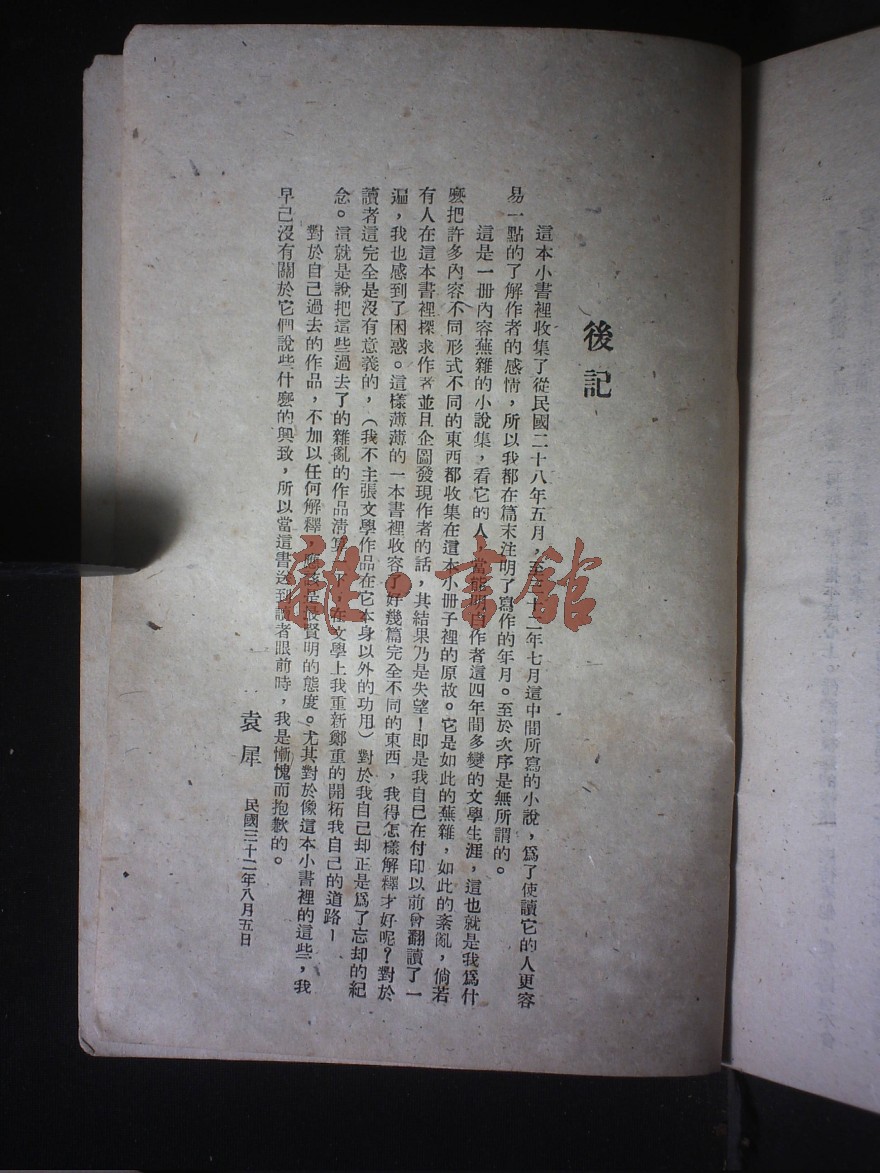 後記
這本小書裡收集了從民國二十八年五月，至三十二年七月這中間所寫的小說，爲了使讀它的人更容
易一點的了解作者的感情，所以我都在篇末注明了寫作的年月。至於次序是無所謂的。
這是一冊內容蕪雜的小說集，看它的人，當能明白作者這四年間多變的文學生涯，這也就是我爲什
麼把許多內容不同形式不同的東西都收集在這本小冊子裡的原故。它是如此的蕪雜，如此的紊亂，倘若
有人在這本書裡探求作者並且企圖發現作者的話，其結果乃是失望！即是我自己在付印以前曾翻讀了一
遍，我也感到了困惑。這樣薄薄的一本書裡收容了好幾篇完全不同的東西，我得怎樣解釋才好呢？對於
讀者這完全是沒有意義的，（我不主張文學作品在它本身以外的功用）對於我自己却正是爲了忘却的紀
念。這就是說把這些過去了的雜亂的作品清算一下，在文學上我重新鄭重的開柘我自己的道路！
對於自己過去的作品，不加以任何解釋，應該是最賢明的態度。尤其對於像這本小書裡的這些，我
早已沒有關於它們說些什麼的興致，所以當這書送到讀者眼前時，我是慚愧而抱歉的。
袁犀 民國三十二年八月五日
雜·書館